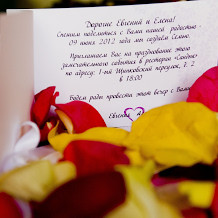 Дорогие Евгений и Елена!
Спешим поделиться с Вами нашей радостью -
09 июня 2012 года мы создаём Семью.
Приглашаем Вас на празднование этого
замечательного события в ресторан
по адресу: 1-ый Щипковский переулок, 1. 2
в 18:00
Будем рады провести этот вечер с Вами
Евгения